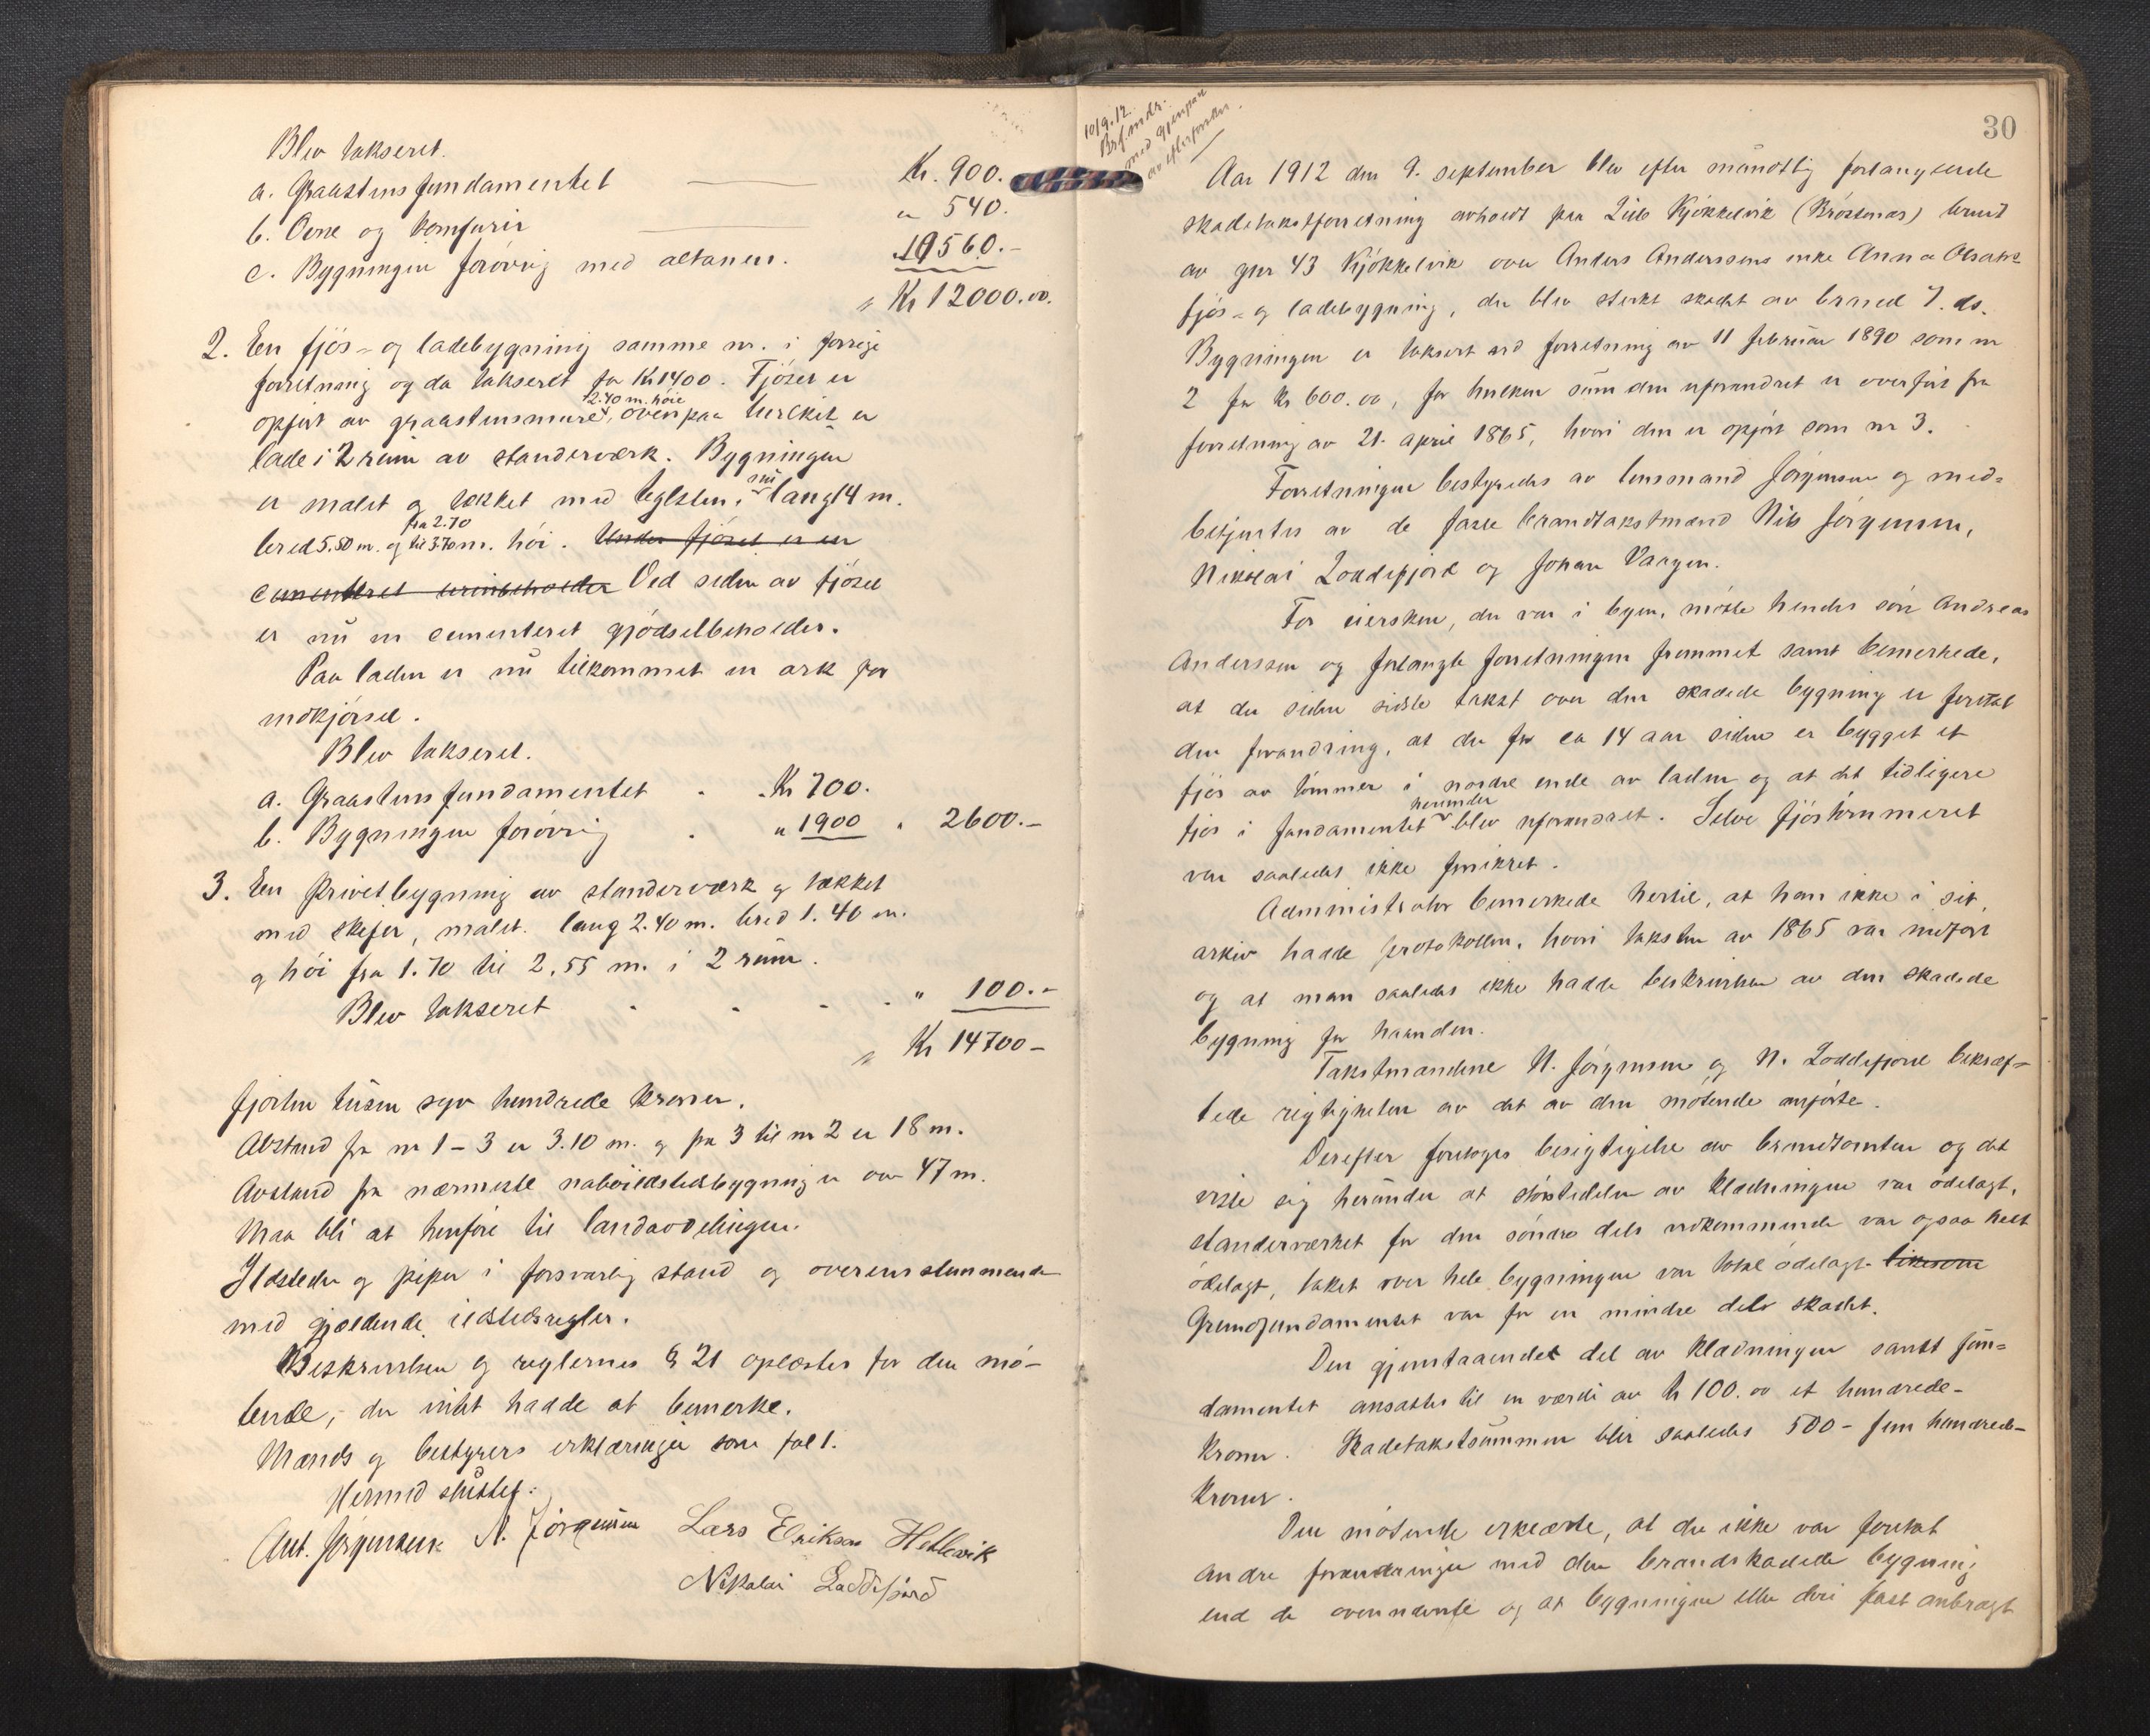 Blev takseret.
a. Graastensfundamentet Kr. 900.
b. Ovne og komfurer " 540.
c. Bygningen forøvrig med altanen. 10560.-
" Kr 12000.00.
2. En fjøs- og ladebygning samme nr. i forrige
forretning og da takseret for Kr 1400. Fjøset er
opført av graastensmure, 2.40 m. høie ovenpaa hvilket er
lade i 2 rum av standerværk. Bygningen
er malet og tækket med teglsten, nu lang 14 m.
bred 5.50 m. og fra 2.70 til 3.70 m. høi. Under fjøset er en
cementeret urinbeholder Ved siden av fjøset
er nu en cementeret gjødselbeholder.
Paa laden er nu tilkommet en ark for
indkjørsel.
Blev takseret.
a. Graastensfundamentet Kr 700.
b. Bygningen forøvrig " 1900 " 2600.-
3. En Privetbygning av standerværk og tækket
med skifer, malet. lang 2.40 m. bred 1.40 m.
og høi fra 1.70 til 2,55 m. i 2 rum.
Blev takseret " 100.-
" Kr 14700-
fjorten tusen syv hundrede kroner.
Avstand fra nr 1-3 er 3.10 m. og fra 3 til nr 2 er 18 m.
Avstand fra nærmeste naboildstedsbygning er over 47 m.
Maa bli at henføre til landavdelingen.
Ildsteder og piper i forsvarlig stand og overensstemmende
med gjældende ildstedsregler.
Beskrivelsen og reglernes § 21 oplæstes for den mø-
tende, der intet hadde at bemerke.
Mænds og bestyrers erklæringer som fol 1.
Hermed sluttet.
Ant. Jørgensen N. Jørgensen Lars Erikson Hetlevik
Nikolai Loddefjord
10/9.12.
Brf. mdr.
med gjenpart
av efterforskn.
30
Aar 1912 den 9. september blev efter mundtlig forlangende
skadetakstforretning avholdt paa Lille Kjøkkelvik (Brøstenæs) bruk
av gnr 43 Kjøkkelvik over Anders Anderssens enke Anna Olsdtrs
fjøs- og ladebygning, der blev sterkt skadet av brand 7. ds.
Bygningen er taksert ved forretning av 11 februar 1890 som nr
2 for Kr 600.00, for hvilken sum den uforandret er overført fra
forretning av 21. april 1865, hvori den er opført som nr 3.
Forretningen bestyredes av lensmand Jørgensen og med-
betjentes av de faste brandtakstmænd Nils Jørgensen,
Nikolai Loddefjord og Johan Vaagen.
For eiersken, der var i byen, møtte hendes søn Andreas
Anderssen og forlangte forretningen fremmet samt bemerkede,
at der siden sidste takst over den skadede bygning er foretat
den forandring, at der for ca 14 aar siden er bygget et
fjøs av tømmer i nordre ende av laden og at det tidligere
fjøs i fundamentet herunder blev uforandret. Selve fjøstømmeret
var saaledes ikke forsikret.
Administrator bemerkede hertil, at han ikke i sit
arkiv hadde protokollen, hvori taksten av 1865 var indført
og at man saaledes ikke hadde beskrivelse av den skadede
bygning for haanden.
Takstmændene N. Jørgensen og N. Loddefjord bekræf-
tede rigtigheten av det av den møtende anførte.
Derefter foretoges besigtigelse av brandtomten og det
viste sig herunder at størstedelen av klædningen var ødelagt,
standerværket for den søndre dels vedkommende var ogsaa helt
ødelagt, taket over hele bygningen var totalt ødelagt likesom
Grundfundamentet var for en mindre dels skadet.
Den gjenstaaende del av klædningen samt fun-
damentet ansattes til en værdi av kr 100.00 et hundrede-
Kroner. Skadetakstsummen blir saaledes 500- fem hundrede-
Kroner.
Den møtende erklærte, at der ikke var foretat
andre forandringer med den brandskadede bygning
end de ovennævnte og at bygningen eller deri fast anbragt